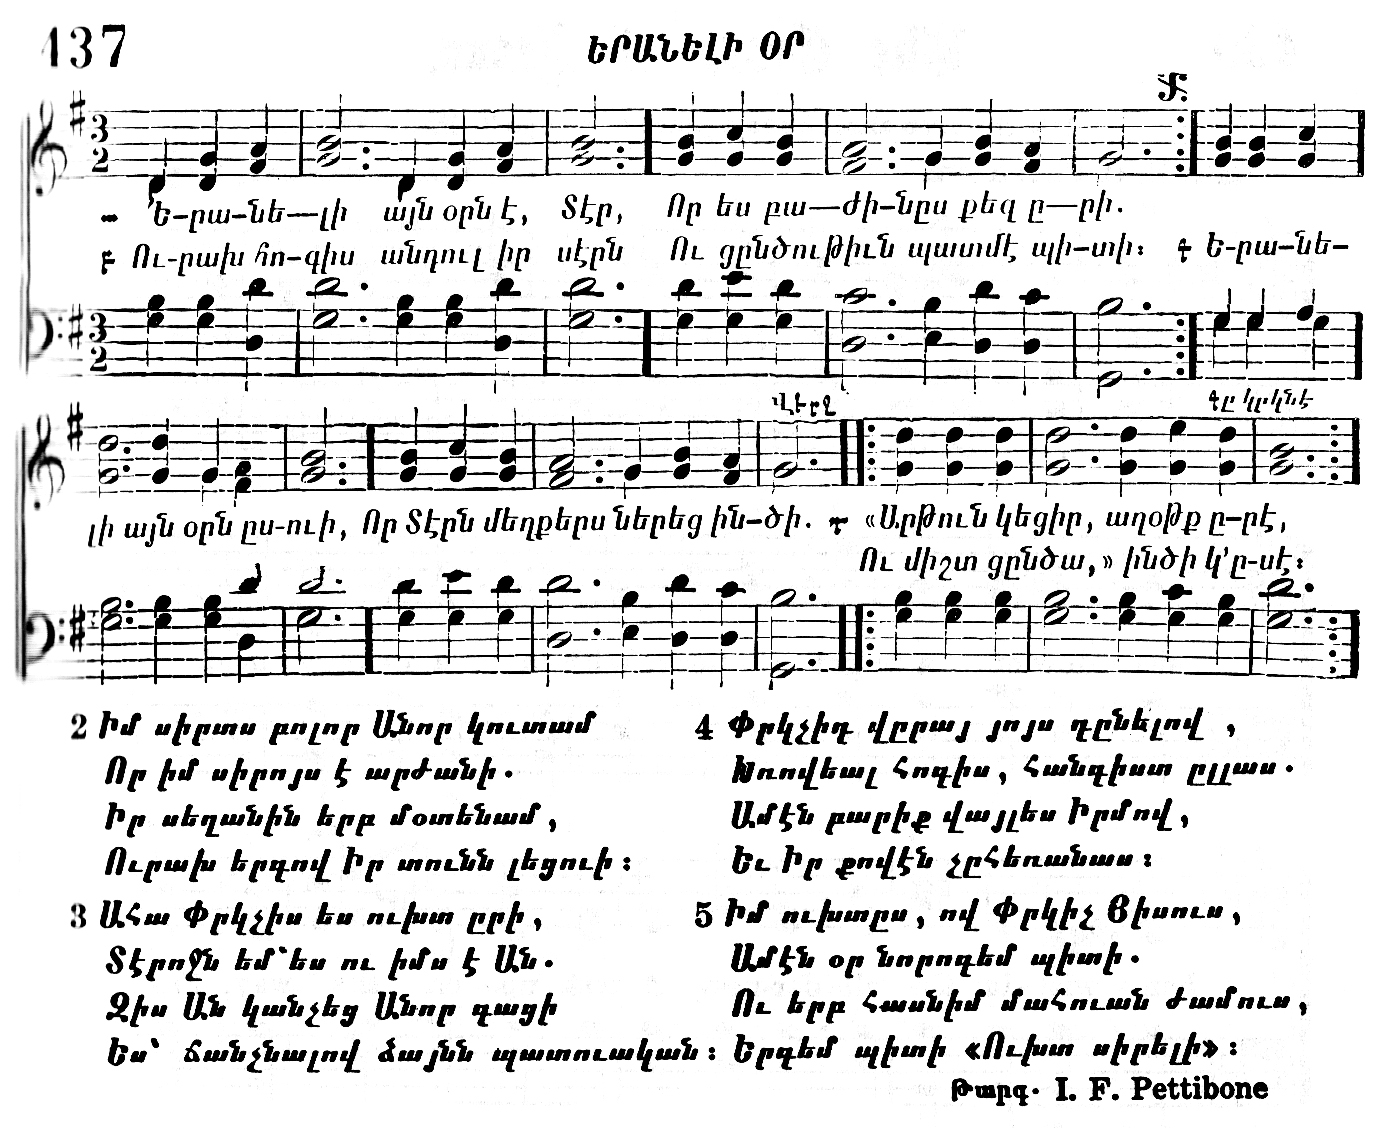 137
ԵՐԱՆԵԼԻ ՕՐ
Ֆ.
Ե-րա-նե-լի այն օրն է, Տէր, Որ ես բա-ժի-նըս քեզ ը-րի.
բ Ու-րախ հո-գիս անդուլ իր սէրն Ու ցընծութիւն պատմէ պի-տի։ գ Ե-րա-նե-
Վերջ
գը կրկնէ
լի այն օրն ըս-ուի, Որ Տէրն մեղքերս ներեց ին-ծի. դ «Արթուն կեցիր, աղօթք ը-րէ,
Ու միշտ ցընծա,» ինծի կ՚ը-սէ։
2 Իմ սիրտս բոլոր Անոր կուտամ
Որ իմ սիրոյս է արժանի.
Իր սեղանին երբ մօտենամ,
Ուրախ երգով Իր տունն լեցուի։
3 Ահա Փրկչիս ես ուխտ ըրի,
Տէրոջն եմ՝ ես ու իմս է Ան.
Զիս Ան կանչեց Անոր գացի
Ես՝ ճանչնալով ձայնն պատուական։
4 Փրկչիդ վըրայ յոյս դընելով,
Խռովեալ հոգիս, հանգիստ ըլլաս.
Ամէն բարիք վայլես Իրմով,
Եւ Իր քովէն չըհեռանաս։
5 Իմ ուխտըս, ով Փրկիչ Յիսուս,
Ամէն օր նորոգեմ պիտի.
Ու երբ հասնիմ մահուան ժամուս,
Երգեմ պիտի «Ուխտ սիրելի»։
Թարգ. I. F. Pettibone